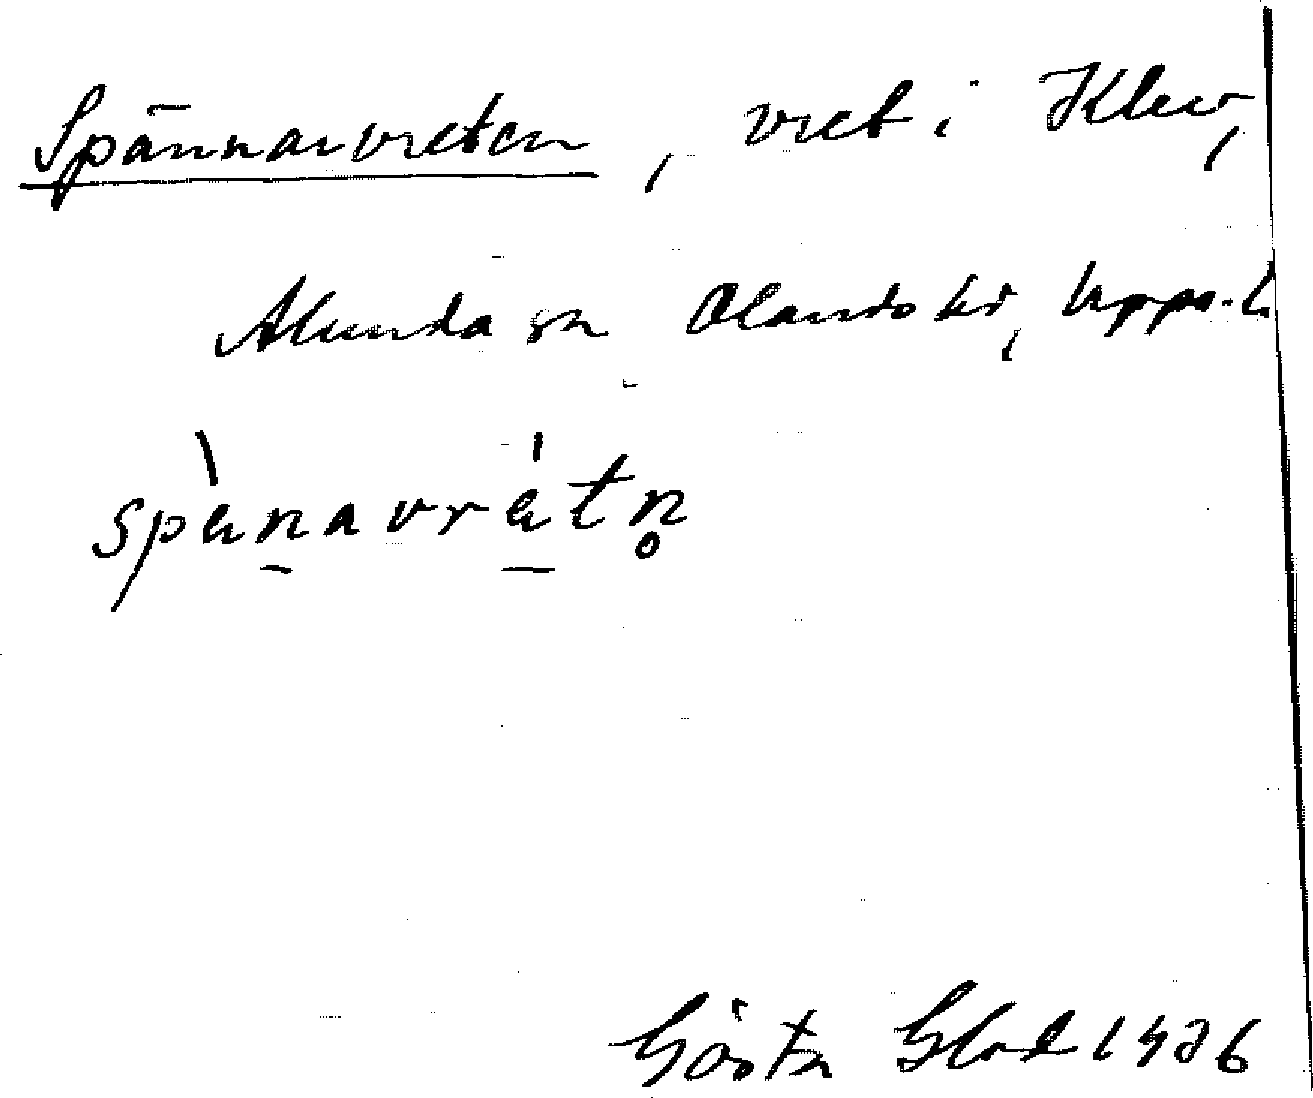 Spännarvreten, vret i Klev,
Alunda sn Olands hd, Upps. l.
spänavrätn̥
Gösta Glad 1926